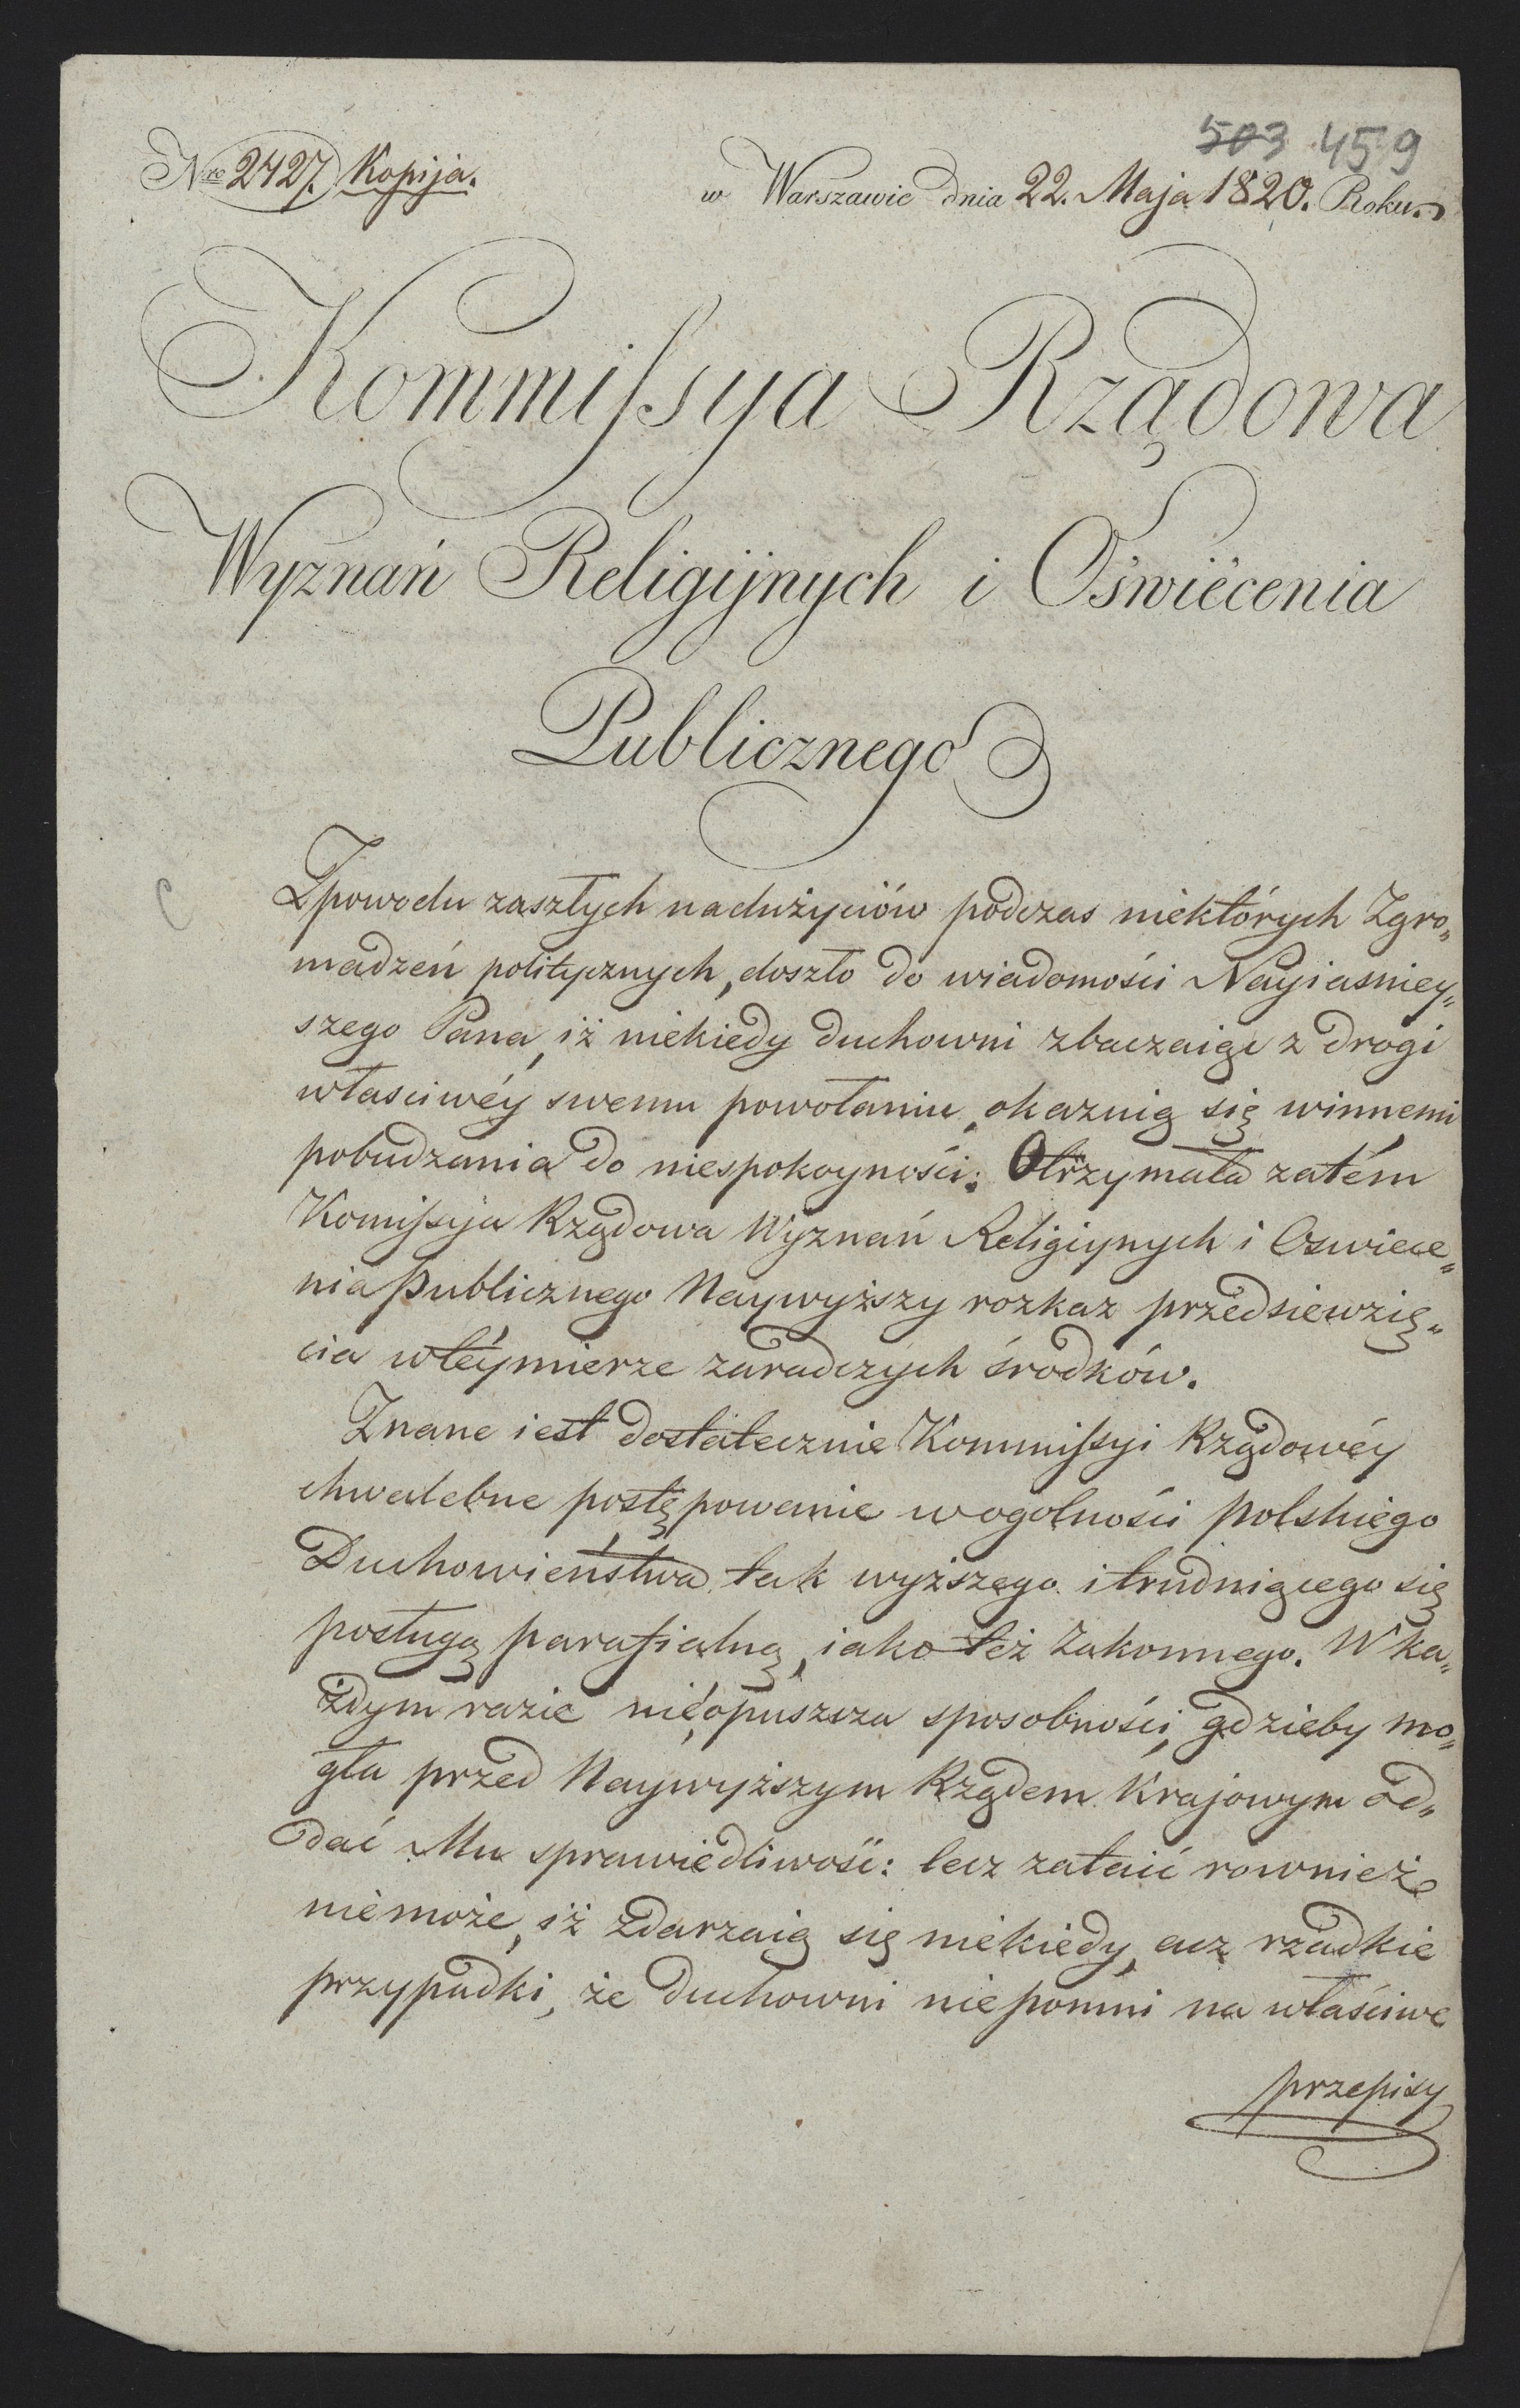 503 459
Nro 2427. Kopija.
w Warszawie dnia 22. Maja 1820. Roku.
Kommissya Rządowa
Wyznań Religijnych i Oświécenia
Publicznego
Z powodu zaszłych nadużyciów podczas niektórych Zgro„
madzeń politycznych, doszło do wiadomości Nayiasniey„
szego Pana, iż niekiedy duchowni zbaczaiąc z drogi
własciwéy swemu powołaniu, okazuią się winnemi
pobudzania do niespokoyności. Otrzymała zatém
Komissyja Rządowa Wyznań Religiynych i Oswiece„
nia Publicznego Naywyższy rozkaz przedsiewzię„
cia w téymierze zaradczych środków.
Znane iest dostatecznie Kommissyi Rządowéy
chwalebne postępowanie wogolności polskiego
Duchowieństwa tak wyższego i trudniącego się
posługą parafialną, iako też Zakonnego. W ka„
żdym razie nieopuszcza sposobności, gdzieby mo„
gła przed Naywyższym Rządem Krajowym od„
dać Mu sprawiedliwość: lecz zataić rownież
niemoże, iż zdarzaią się niekiedy, acz rzadkie
przypadki, że duchowni niepomni na właściwe
przepisy